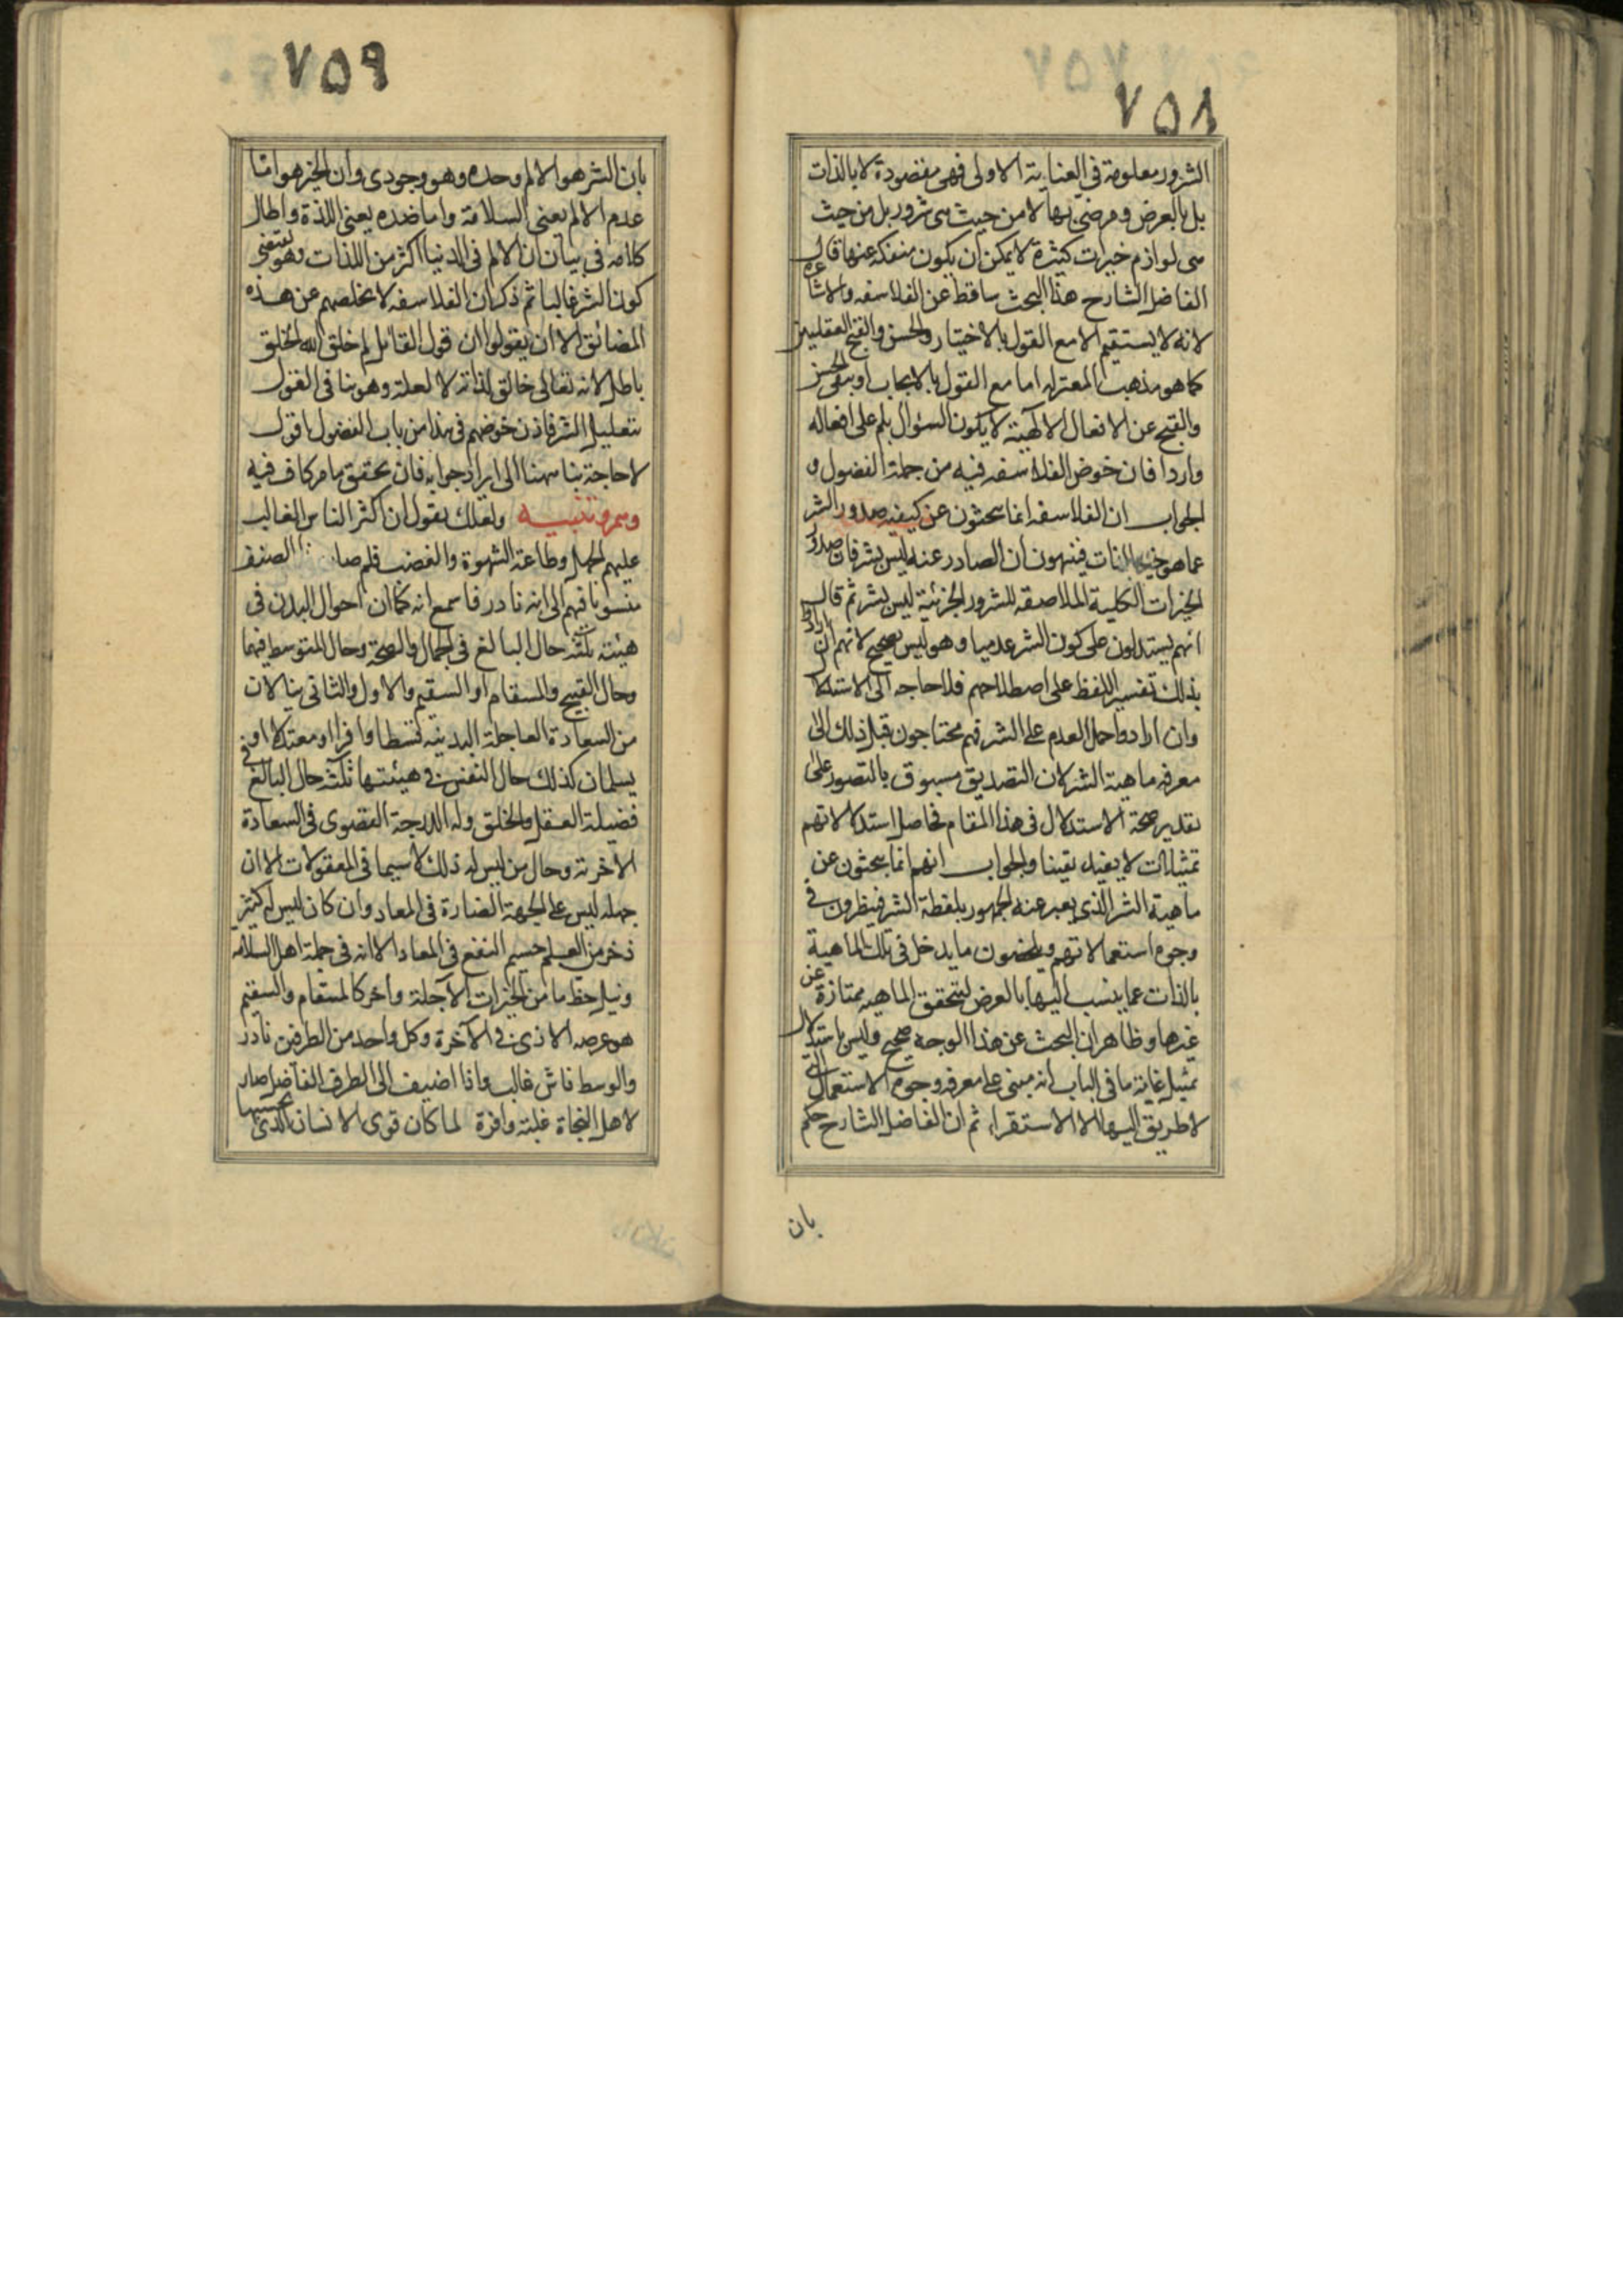 ٧٥٨
الشرور معلومة فى العناية الاولى فهى مقصودة لا بالذات
بل بالعرض و مرضى بها لا من حيث هى شرور بل من حيث
هى لوازم خيرات كثيرة لا يمكن ان يكون منفكة عنها قال
الفاضل الشارح هذا البحث ساقط عن الفلاسفه والاشاعره
لانه لا يستقيم الا مع القول بالاختيار والحسن والقبح العقليين
كما هو مذهب المعتزله اما مع القول بالايجاب او بنفى الحسن
والقبح عن الافعال الالهية لا يكون السؤال بلم على افعاله
واردا فان خوض الفلاسفه فيه من جملة الفضول و
الجواب ان الفلاسفه انما يبحثون عن كيفيه صدور الشر
عما هو خير بالذات فينبهون ان الصادر عنه ليس بشر فان صدور
الخيرات الكلية الملاصقه للشرور الجزئية ليس بشر ثم قال
انهم يستدلون على كون الشر عدميا وهو ليس بصحيح لانهم ان ارادوا
بذلك تفسير اللفظ على اصطلاحهم فلا حاجه الى الاستدلال
وان ارادوا حمل العدم على الشر فهم محتاجون قبل ذلك الى
معرفه ماهية الشر لان التصديق مسبوق بالتصور على
تقدير صحة الاستدلال فى هذا المقام فحاصل استدلالاتهم
تمثيلات لا يفيد يقينا والجواب انهم انما يبحثون عن
ماهية الشر الذى يعبر عنه الجمهور بلفظة الشر فينظرون فى
وجوه استعمالاتهم ويلخصون ما يدخل فى تلك الماهية
بالذات عما ينسب اليها بالعرض ليتحقق الماهيه ممتازة عن
غيرها و ظاهر ان البحث عن هذا الوجه صحيح وليس باستدلال
تمثيل غاية ما فى الباب انه مبنى على معرفه وجوه الاستعمال التى
لا طريق اليها الا الاستقراء ثم ان الفاضل الشارح حكم
بان
٧٥٩
بان الشر هو الالم وحده وهو وجودى وان الخير هو اما
عدم الالم يعنى السلامة واما ضده يعنى اللذة واطال
كلامه فى بيان ان الالم فى الدنيا اكثر من اللذات وهو يقتضى
كون الشر غالبا ثم ذكر ان الفلاسفه لا يخلصهم عن هذه
المضائق الا ان يقولوا ان قول القائل لم خلق الله الخلق
باطل لانه تعالى خالق لذاته لا لعلة وهو ينافى القول
بتعليل الشر فاذن خوضهم فى هذا من باب الفضول اقول
لا حاجة بنا ههنا الى ايراد جوابه فان تحقق ما مر كاف فيه
وهم و تنبيه ولعلك تقول ان اكثر الناس الغالب
عليهم الجهل وطاعة الشهوة والغضب فلم صار الصنف
منسوبا فيهم الى انه نادر فاسمع انه كما ان احوال البدن فى
هيئته ثلثه حال البالغ فى الجمال والصحة وحال المتوسط فيهما
وحال القبيح والمسقام او السقيم والاول والثانى ينالان
من السعادة العاجلة البدنيه قسطا وافرا او معتدلا او
يسلمان كذلك حال النفس فى هيئتها ثلثه حال البالغ فى
فضيلة العقل والخلق وله الدرجة القصوى فى السعادة
الاخرته وحال من ليس له ذلك لا سيما فى المعقولات الا ان
جهله ليس على الجهة الضارة فى المعاد وان كان ليس له كثير
ذخر من العلم جسيم النفع فى المعاد الا انه فى جملة اهل السلامه
ونيل حظ ما من الخيرات الآجلة وآخر كالمسقام والسقيم
هو عرصه الاذى فى الآخرة وكل واحد من الطرفين نادر
والوسط فاش غالب واذا اضيف الى الطرف الفاضل صار
لاهل النجاة غلبة وافرة لما كان قوى الانسان التى بحسبها